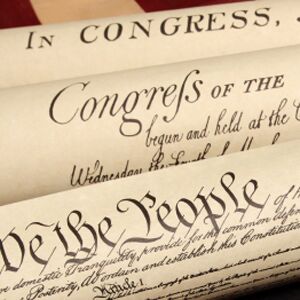 IN CONGRESS,
Congreſs OF THE
begun and held at the C
Wednesday the
We the People of
domestic Tranquility, provide for the common defence
Posterity, do ordain and establish this Constitution
Article 1